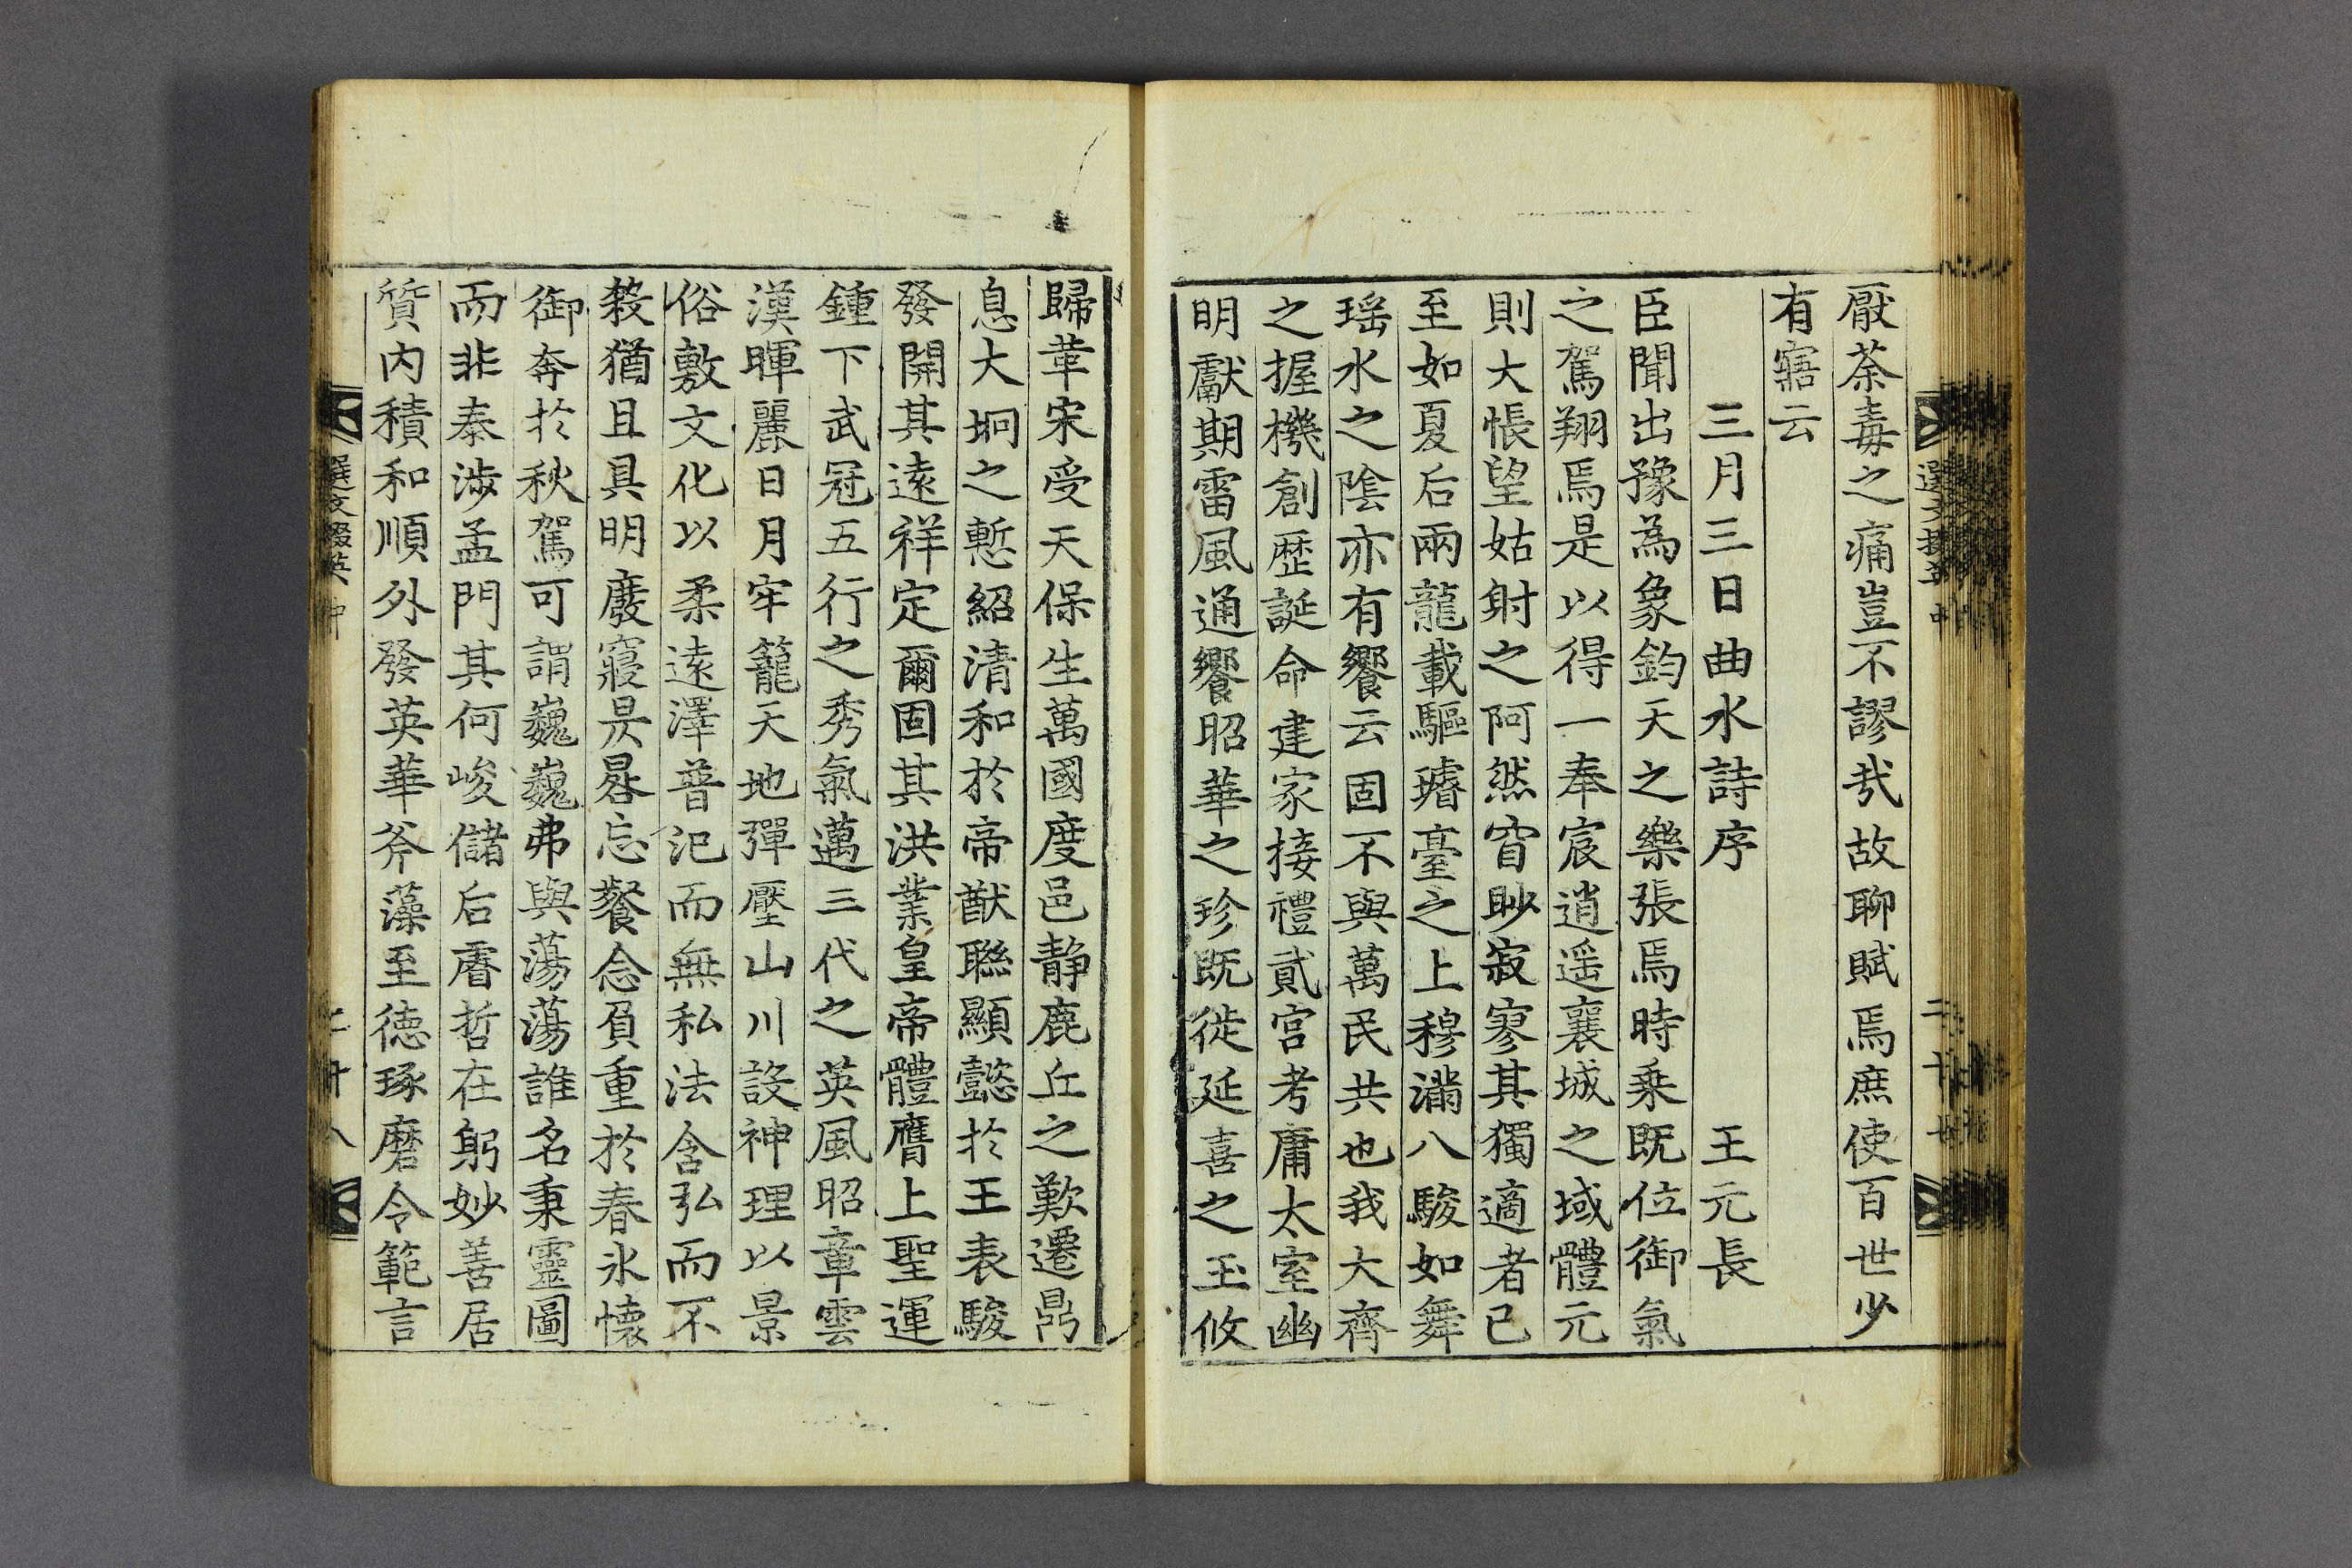 厭荼毒之痛豈不謬哉故聊賦焉庶使百世少
有寤云
三月三日曲水詩序 王元長
臣聞出豫為象鈞天之樂張焉時乗既位御氣
之駕翔焉是以得一奉宸逍遥襄城之域體元
則大悵望姑射之阿然窅眇寂寥其獨適者已
至如夏后兩龍載驅璿臺之上穆滿八駿如舞
瑶水之隂亦有饗云固不與萬民共也我大齊
之握機創歷誕命建家接禮貳宮考庸太室幽
明獻期雷風通饗昭華之珍既徙延喜之玉攸
歸革宋受天保生萬國度邑靜鹿丘之歎遷鼎
息大坰之慙紹清和於帝猷聯顯懿於王表駿
發開其遠祥定爾固其洪業皇帝體膺上聖運
鍾下武冠五行之秀氣邁三代之英風昭章雲
漢暉麗日月牢籠天地彈壓山川設神理以景
俗敷文化以柔遠澤普汜而無私法含弘而不
殺猶且具明廢寢昃晷忘餐念負重於春氷懷
御奔於秋駕可謂巍巍弗與蕩蕩誰名秉靈圖
而非泰涉孟門其何峻儲后睿哲在躬妙善居
質内積和順外發英華斧藻至徳琢磨令範言
選文掇英 中 二十八